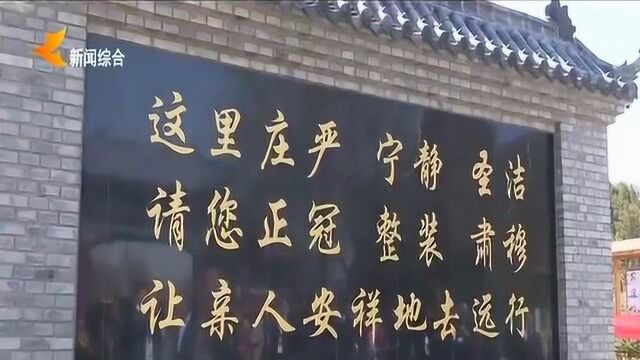 新闻综合
这里庄严 宁静 圣洁
请您正冠 整装 肃穆
让亲人安祥地去远行